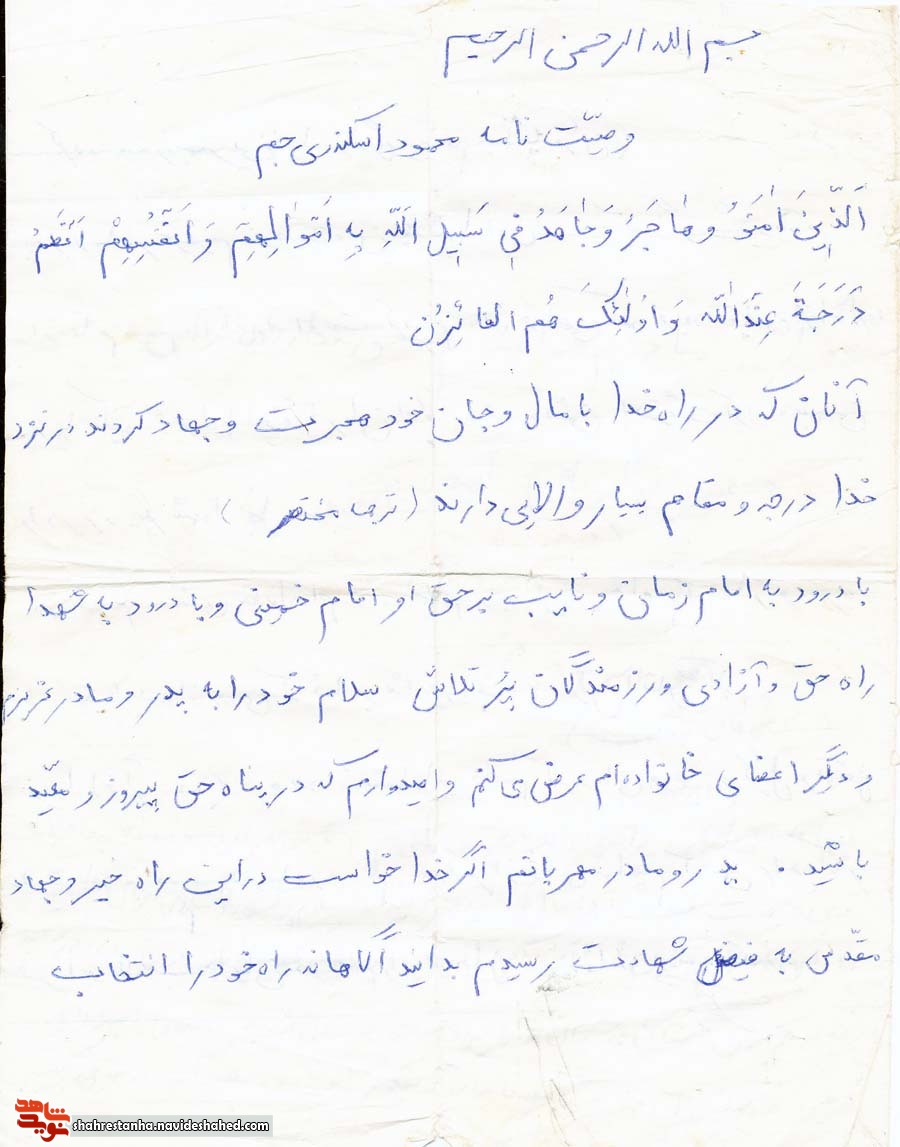 بسم الله الرحمن الرحیم
وصیّت نامه محمود اسکندری جم
اَلَّذِینَ اٰمَنَوُ وَ هٰاجَرَُ وَ جٰاهَدُ فیِ سَبٖیلِ اَللّهِ بِهِ اَموَالِهِم وَ اَنْفُسِهِمْ اَعْظَمُ
دَرَجَةَ عِنْدَاللّٰه وَ اوُلٰئِکَ هُم الفائِزُن
آنان که در راه خدا با مال و جان خود هجرت و جهاد کردند در نزد
خدا درجه و مقام بسیار والایی دارند (ترجما مختصر)
با درود به امام زمان و نایب بر حق او امام خمینی و با درود به شهدا
راه حق و آزادی و رزمندگان پُر تلاش سلام خود را به پدر و مادر عزیزم
و دیگر اعضای خانواده ام عرض می کنم و امیدوارم که در پناه حق پیروز و مؤیّد
باشید . پدر و مادر مهربانم اگر خدا خواست در این راه خیر و جهاد
مقدّس به فیض شهادت رسیدم بدانید آگاهانه راه خود را انتخاب
نوید شاهد
shahrestanha.navideshahed.com